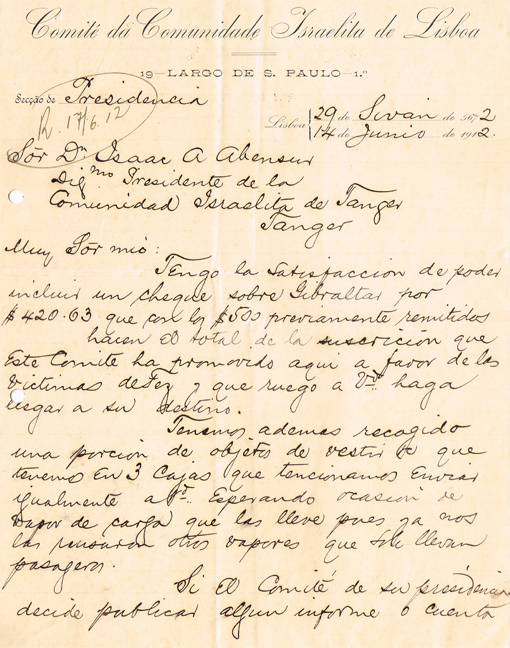 Comité da Comunidade Israelita de Lisboa
19—LARGO DE S. PAULO—1.º
Secção de Presidencia
R. 17/6.12
Lisboa 29 de Sivan de 5672
14 de Junio de 1912.
Sór Dn Isaac A Abensur
Digmo Presidente de la
Comunidad Israelita de Tanger
Tanger
Muy Sór mio:
Tengo la satisfaccion de poder
incluir un cheque sobre Gibraltar por
$420.63 que con los $500 previamente remitidos
hacen el total de la suscrición que
Este Comité ha promovido aqui a favor de las
victimas de Fez y que ruego a Vd. haga
llegar a su destino.
Tenemos ademas recogido
una porcion de objetos de vestir &c que
tenemos En 3 Cajas que tencionamos Enviar
igualmente a Vd. Esperando ocasion de
vapor de carga que las lleve pues ya nos
las recusaron otros vapores que solo llevan
pasageros.
Si El Comité de su presidencia
decide publicar algun informe o cuenta